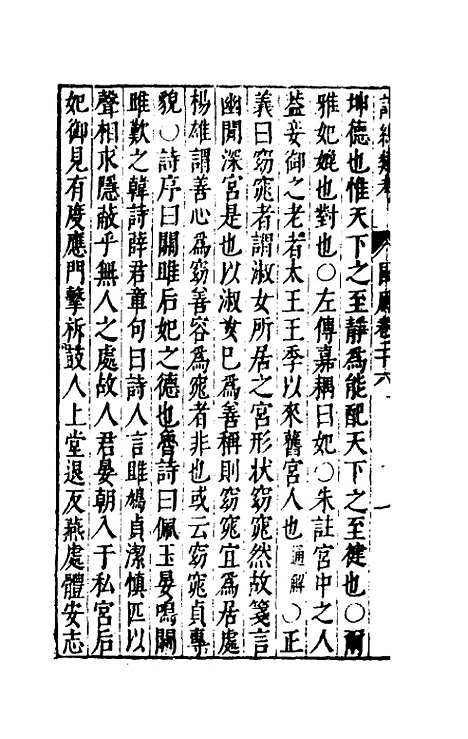 坤德也惟天下之至靜爲能配天下之至健也○爾
雅妃媲也對也○左傳嘉耦曰妃○朱註宮中之人
葢妾御之老者太王王季以來舊宮人也通解○正
義曰窈窕者謂淑女所居之宮形狀窈窕然故箋言
幽閒深宮是也以淑女已爲善稱則窈窕宜爲居處
楊雄謂善心爲窈善容爲窕者非也或云窈窕貞專
貌○詩序曰關雎后妃之德也魯詩曰佩玉晏鳴關
雎歎之韓詩薛君章句曰詩人言雎鳩貞潔慎匹以
聲相求隱蔽乎無人之處故人君晏朝入于私宮后
妃御見有度應門擊柝鼓人上堂退反燕處體安志